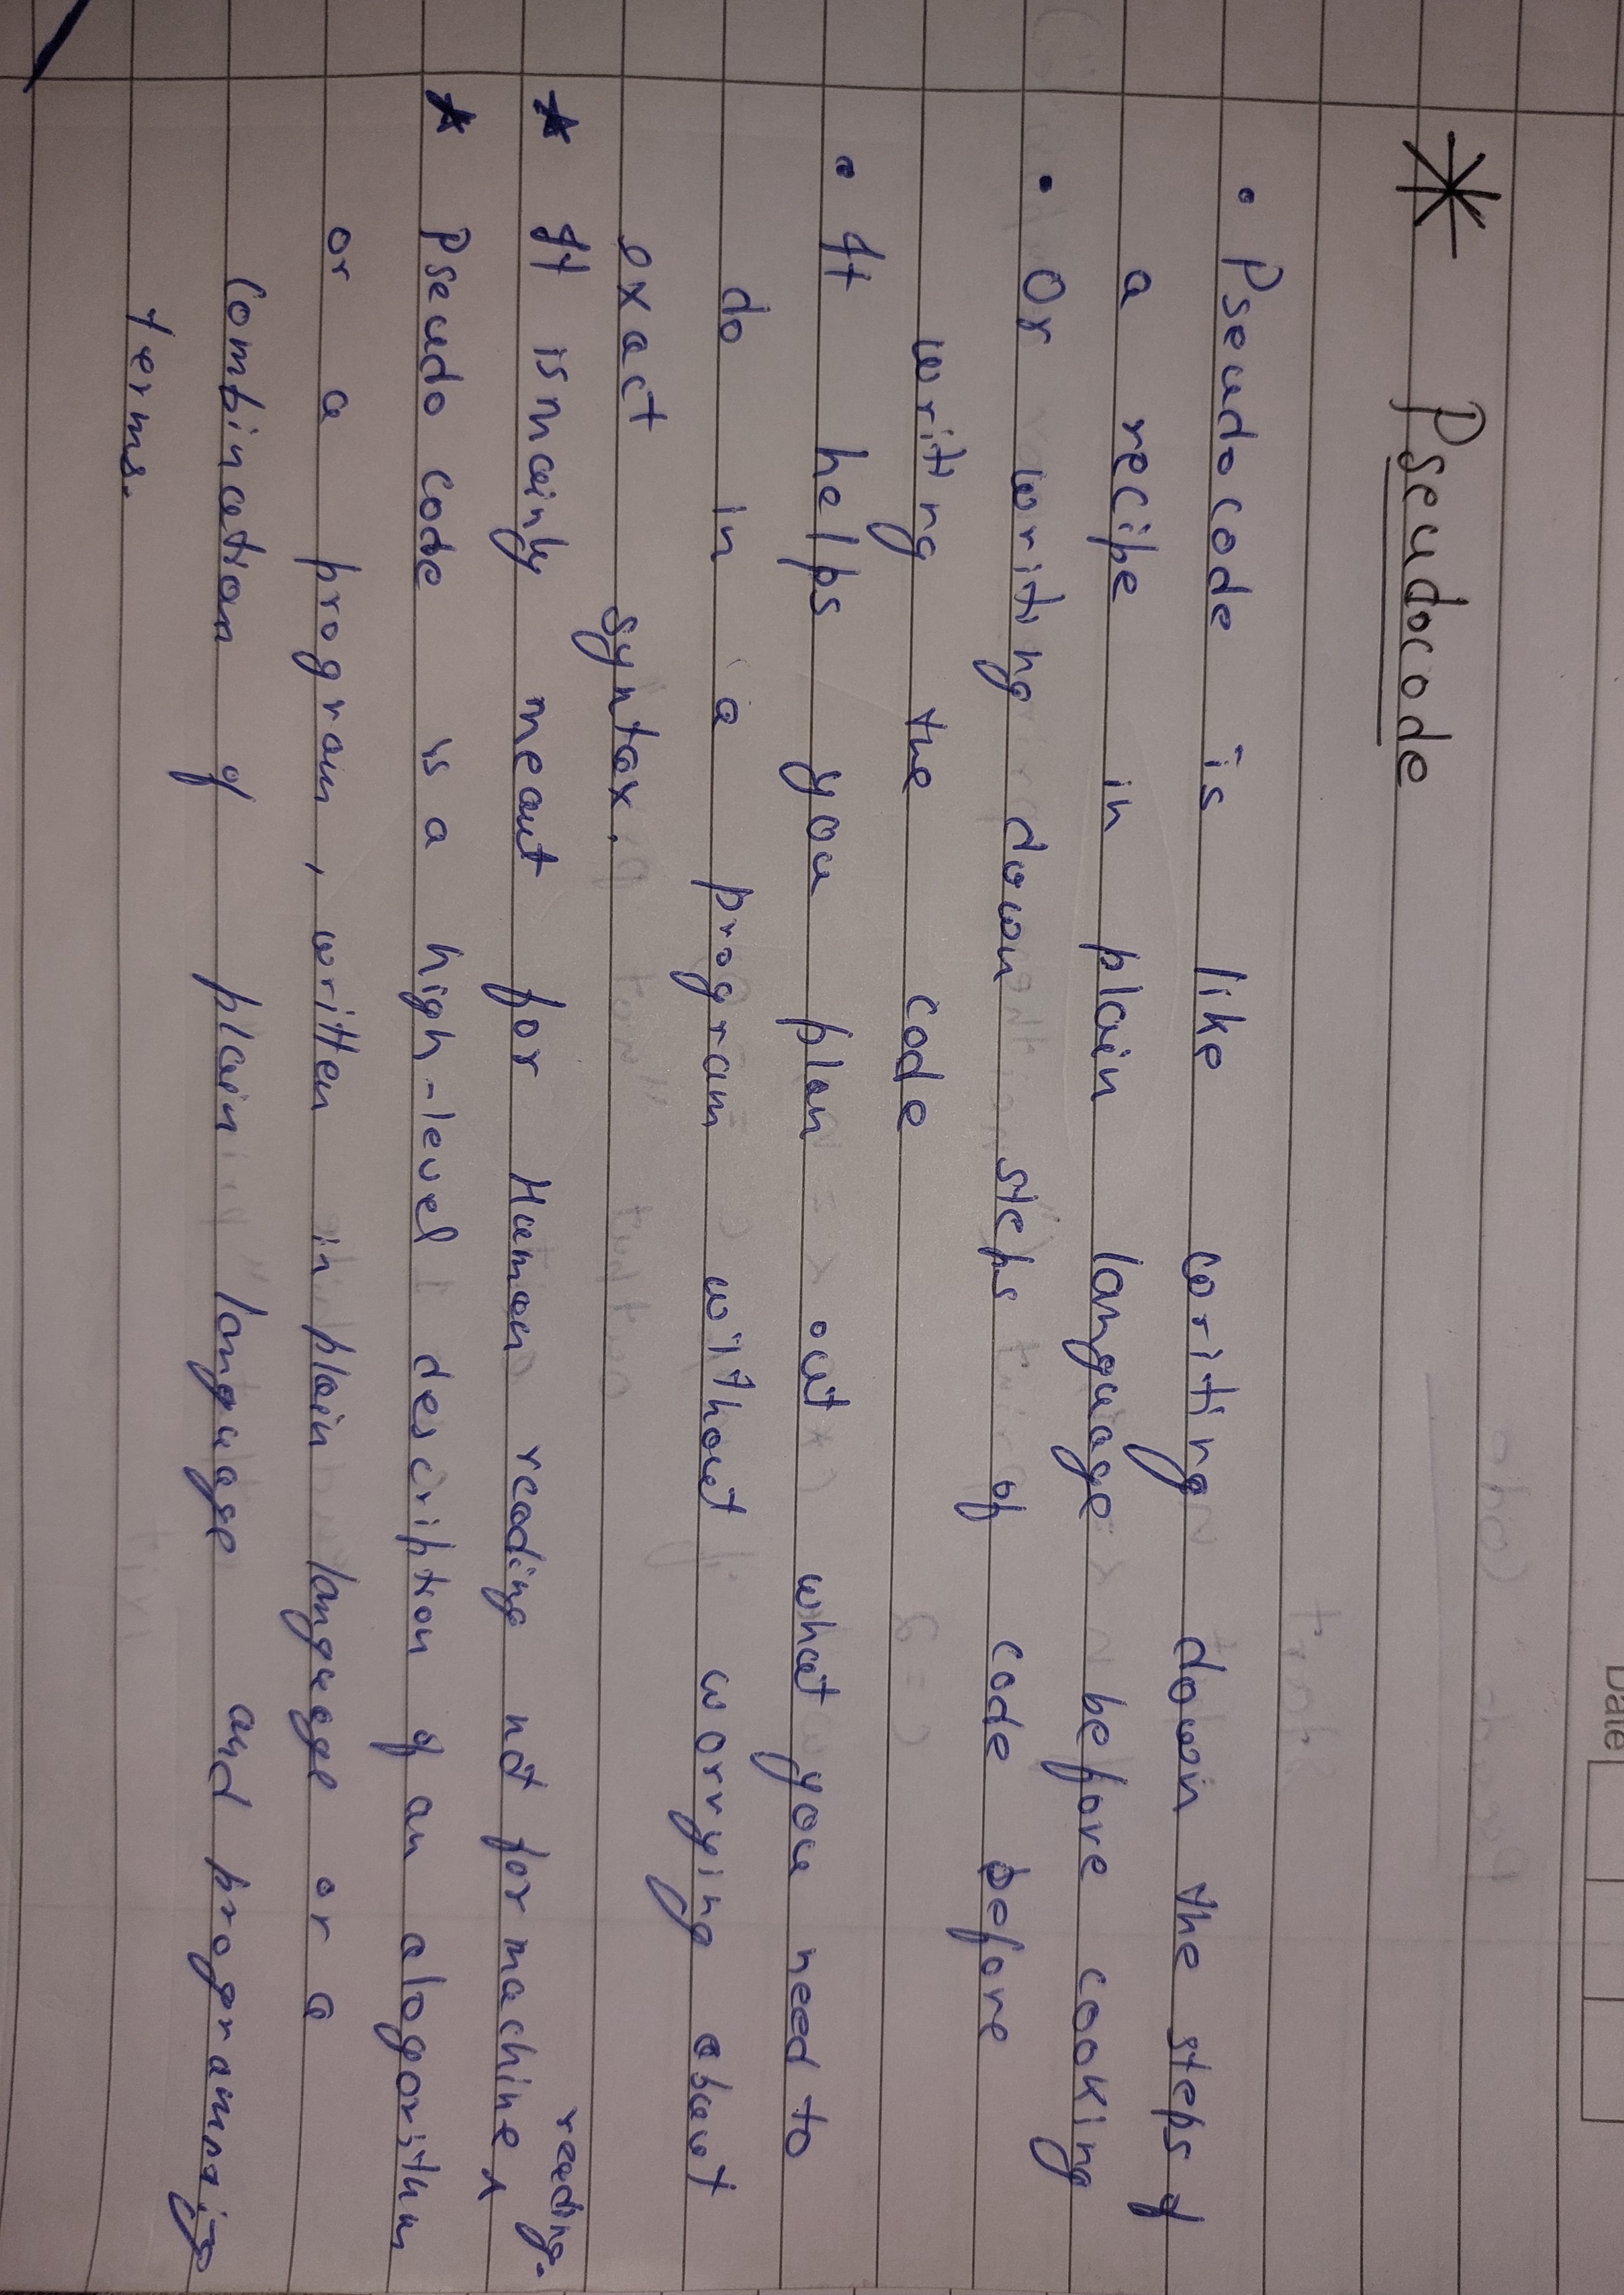 Date
* Pseudocode
• Pseudocode is like writing down the steps of
a recipe in plain language before cooking
• Or writing down steps of code before
writing the code
• It helps you plan out what you need to
do in a program without worrying about
exact syntax.
★ It is mainly meant for Human reading not for machine reading.
★ Pseudo code is a high-level description of an alogorithm
or a program, written in plain language or a
combination of plain language and programming
terms.